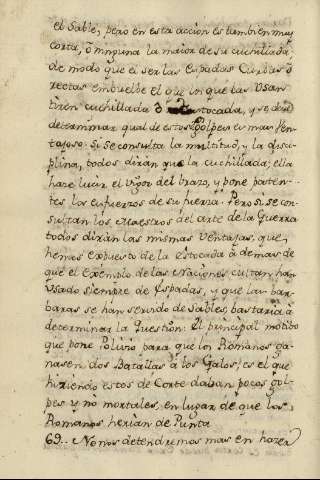 el Sable; pero en esta acción es tambien muy
corta, ó ninguna la maior de su cuchillada
de modo que el ser las Espadas Curbas ó
rectas embuelbe el que in que las Usan
tiren cuchillada ó Estocada, y se debe
determinar qual de estos Golpes es mas Ven-
tajoso. Si se consulta la multitud, y la disci-
plina, todos dirán que la cuchillada; ella
haze lucir el vigor del brazo, y pone paten-
tes los esfuerzos de su fuerza. Pero si se con-
sultan los Maestros del arte de la Guerra
todos dirán las mismas Ventajas, que
hemos expuesto de la Estocada á demas de
que el exemplo de las Naciones cultas han
Usado siempre de Espadas, y que las bar-
baras se han servido de Sables, bastaria á
determinar la Question. El principal motibo
que pone Polivio para que los Romanos ga-
nasen dos Batallas á los Galos, es el que
hiriendo estos de Corte daban pocos gol-
pes y no mortales, en lugar de que los
Romanos herian de Punta
69.. No nos detendremos mas en hazer